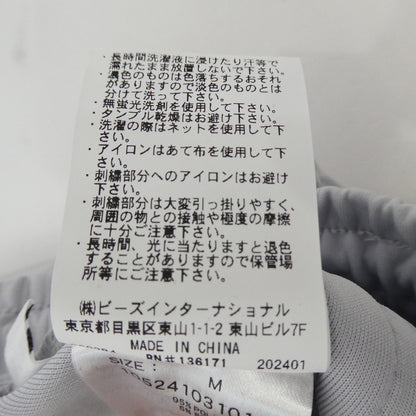 ・長時間洗濯液に浸けたり汗等で
濡れたまま放置しないで下さい。
・濃色のものは色落ちするおそれ
がありますので淡色のものとは
分けて洗って下さい。
・無蛍光洗剤を使用して下さい。
・タンブル乾燥はお避け下さい。
・洗濯の際はネットを使用して下
さい。
・アイロンはあて布を使用して下
さい。
・刺繍部分へのアイロンはお避け
下さい。
・刺繍部分は大変引っ掛りやすく、
周囲の物との接触や極度の摩擦
に十分ご注意下さい。
・長時間、光に当たりますと退色
することがありますので保管場
所等にご注意下さい。
(株)ビーズインターナショナル
東京都目黒区東山1-1-2 東山ビル7F
MADE IN CHINA
RN# 136171 202401
SIZE: M